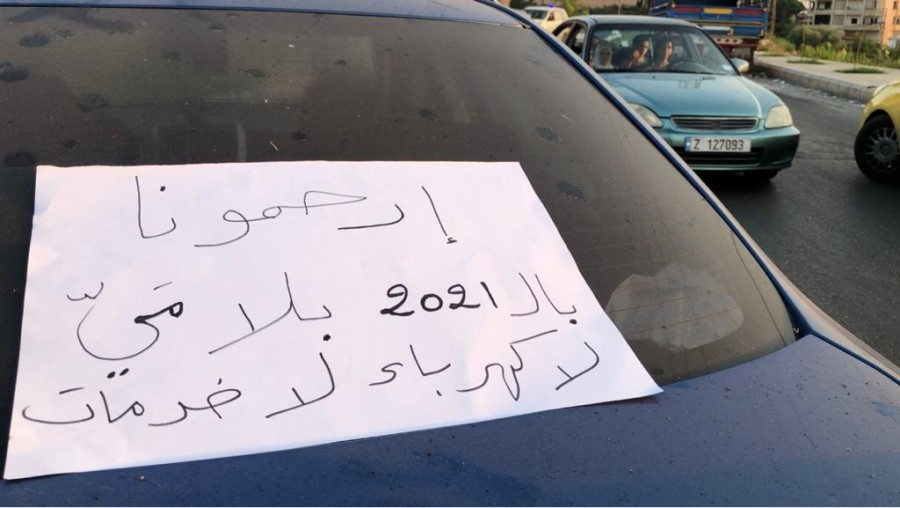 إرحمونا
بالـ 2021 بلا مَيّ
لا كهرباء لا خدمات
Z 127093